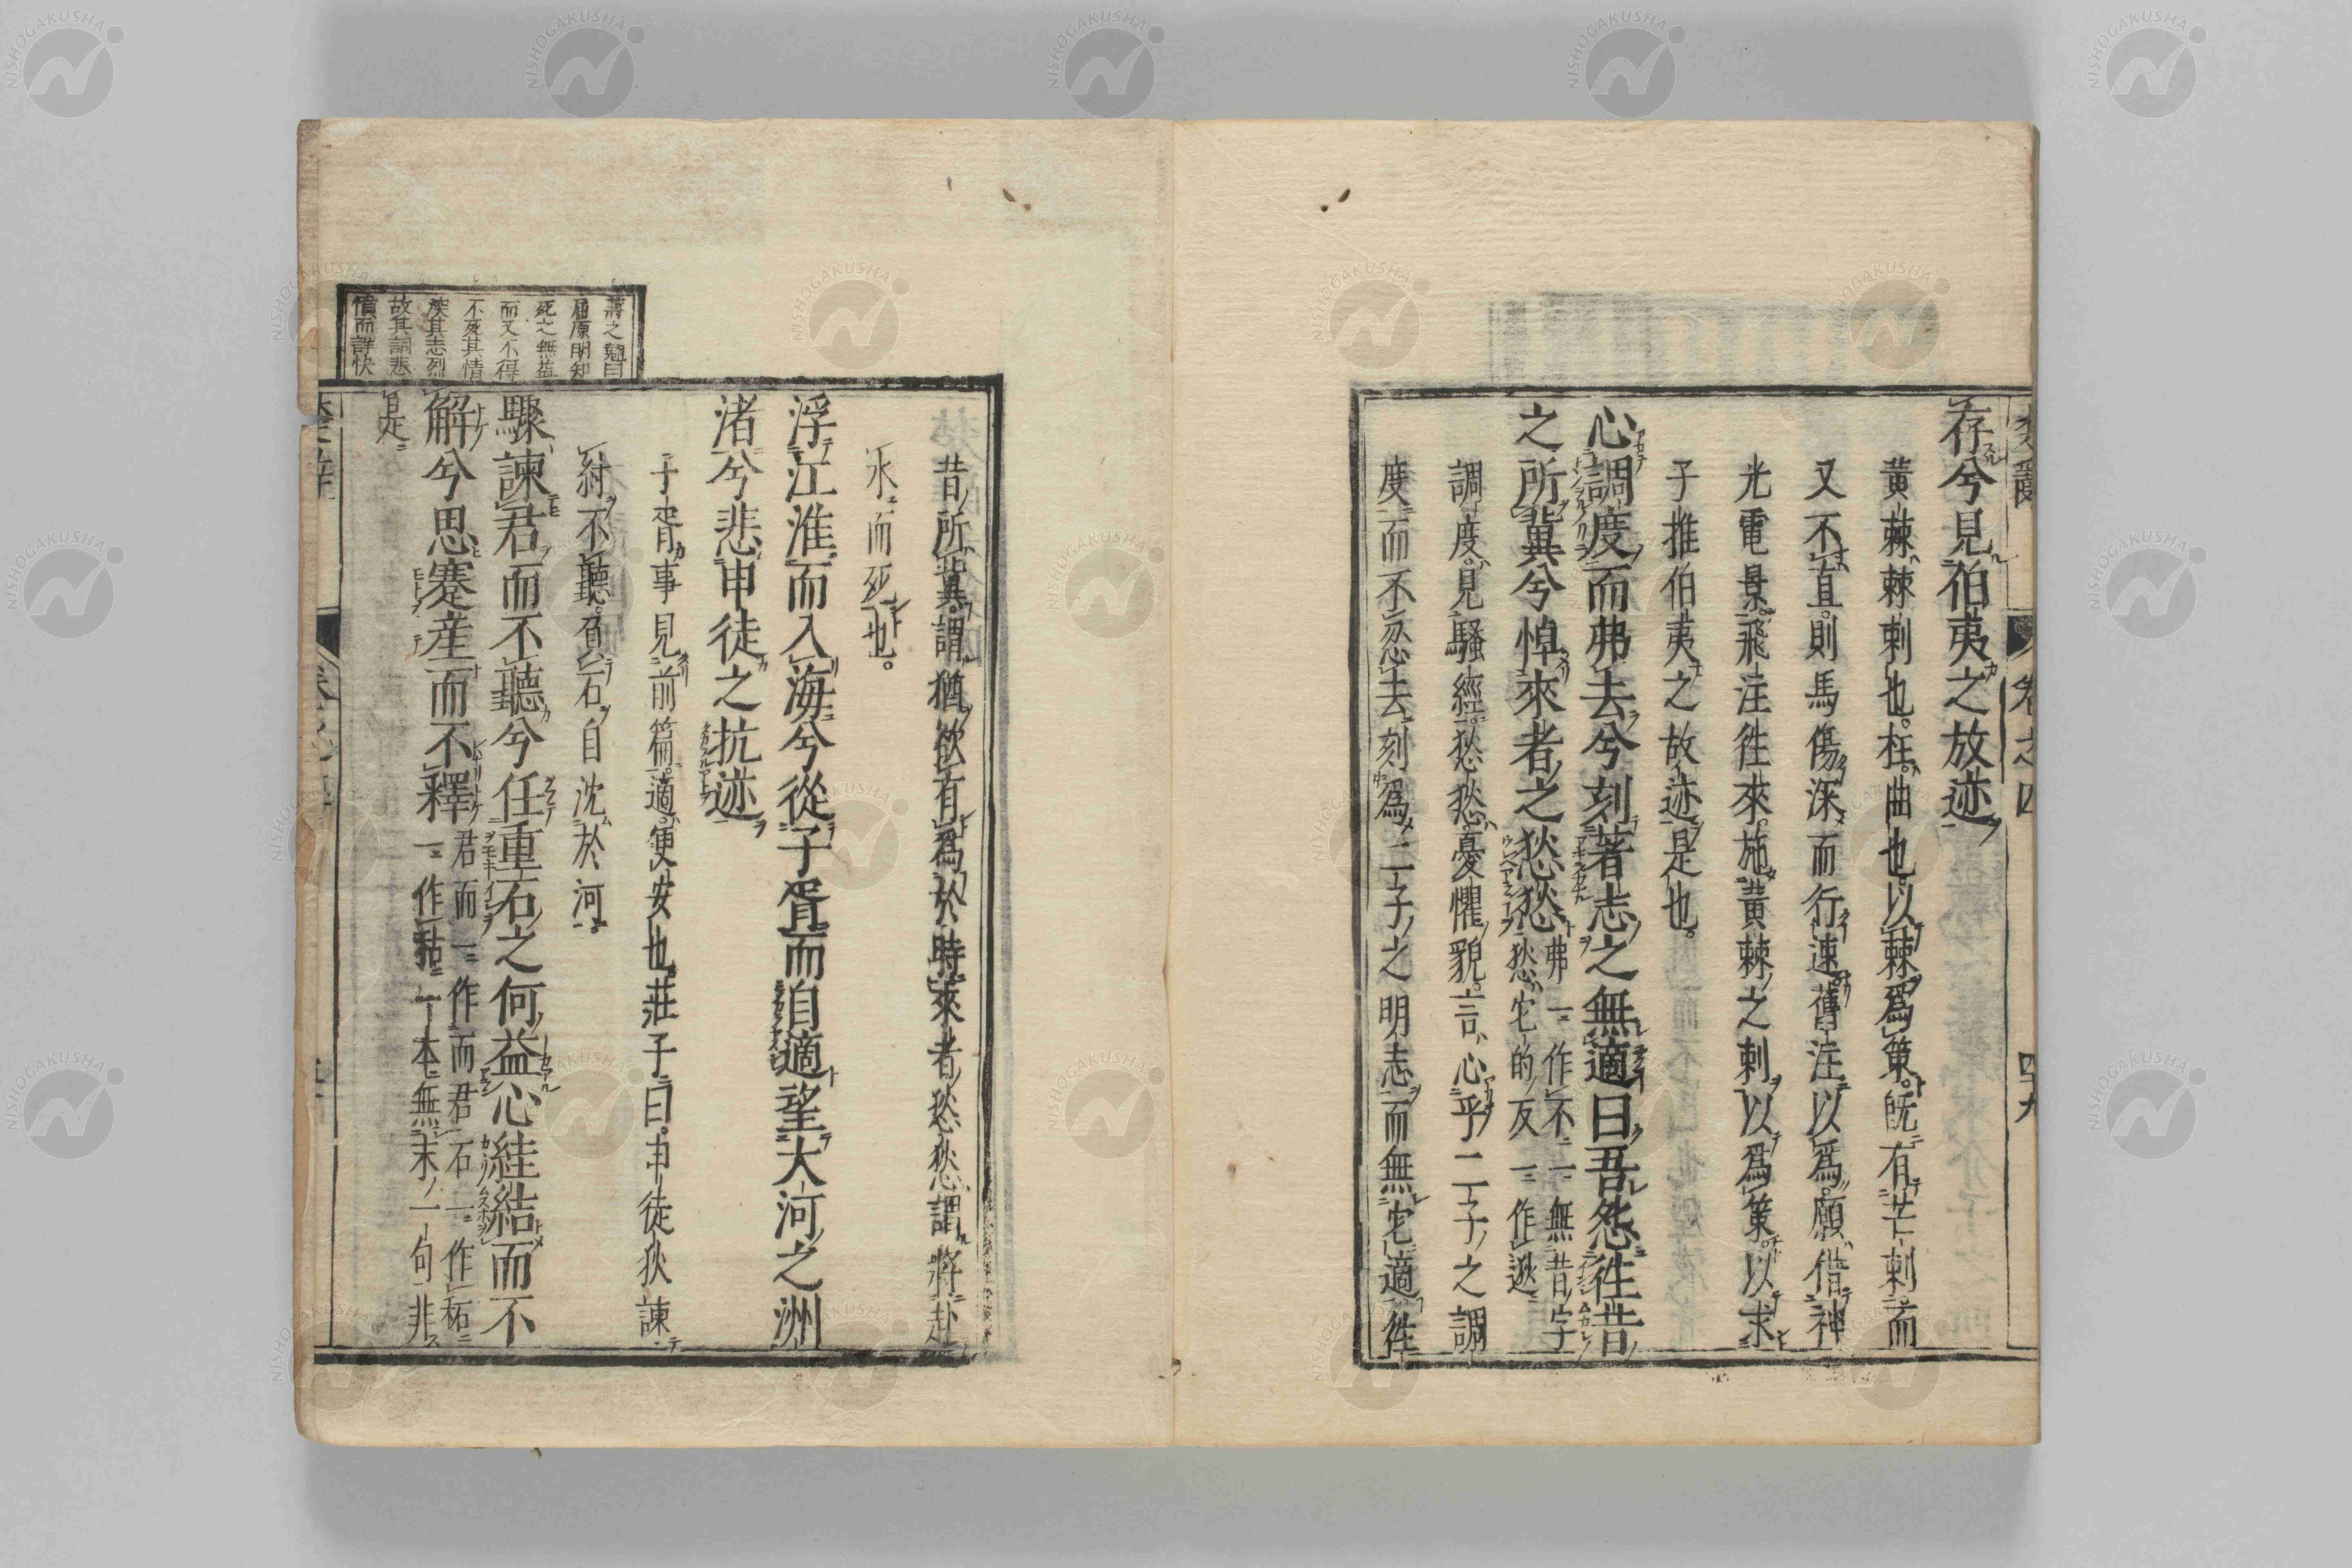 存兮見伯夷之放迹
黃棘棘刺也枉曲也以棘爲策既有芒刺而
又不直則馬傷深而行速舊注以爲願借神
光電景飛注徃來施黃棘之刺以爲策以求
子推伯夷之故迹是也。
心調度而弗去兮刻著志之無適曰吾怨徃昔
之所冀兮悼來者之愁愁弗一作不一無昔字
愁它的反一作逖
調度見騷經愁愁憂懼貌言心乎二子之調
度而不忍去刻爲二子之明志而無它適徃
昔所冀謂猶欲有爲於時來者愁愁謂將赴
水而死也。
浮江淮而入海兮從子胥而自適望大河之洲
渚兮悲申徒之抗迹
子胥事見前篇適便安也莊子曰申徒狄諫
紂不聽負石自沈於河。
驟諫君而不聽兮任重石之何益心絓結而不
解兮思蹇産而不釋君而一作而君石一作䄷
一作䄷一本無末一句非
是
蔣之翹曰
屈原明知
死之無益
而又不得
不死其情
深其志烈
故其詞悲
憤而詳快
卷之四
四十九
NISHOGAKUSHA